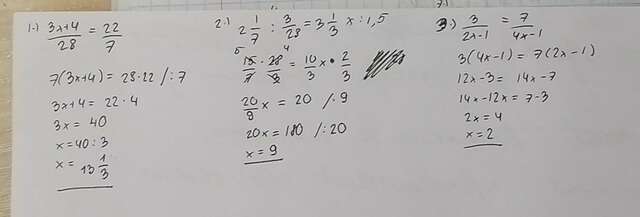 1.) (3x+4)/28 = 22/7
7(3x+4) = 28·22 /:7
3x+4 = 22·4
3x = 40
x = 40:3
x = 13 1/3
2.) 2 1/7 : 3/28 = 3 1/3 x : 1,5
5 4
15/7 · 28/3 = 10/3 x · 2/3
20/9 x = 20 /·9
20x = 180 /:20
x = 9
3.) 3/(2x-1) = 7/(4x-1)
3(4x-1) = 7(2x-1)
12x-3 = 14x-7
14x-12x = 7-3
2x = 4
x = 2